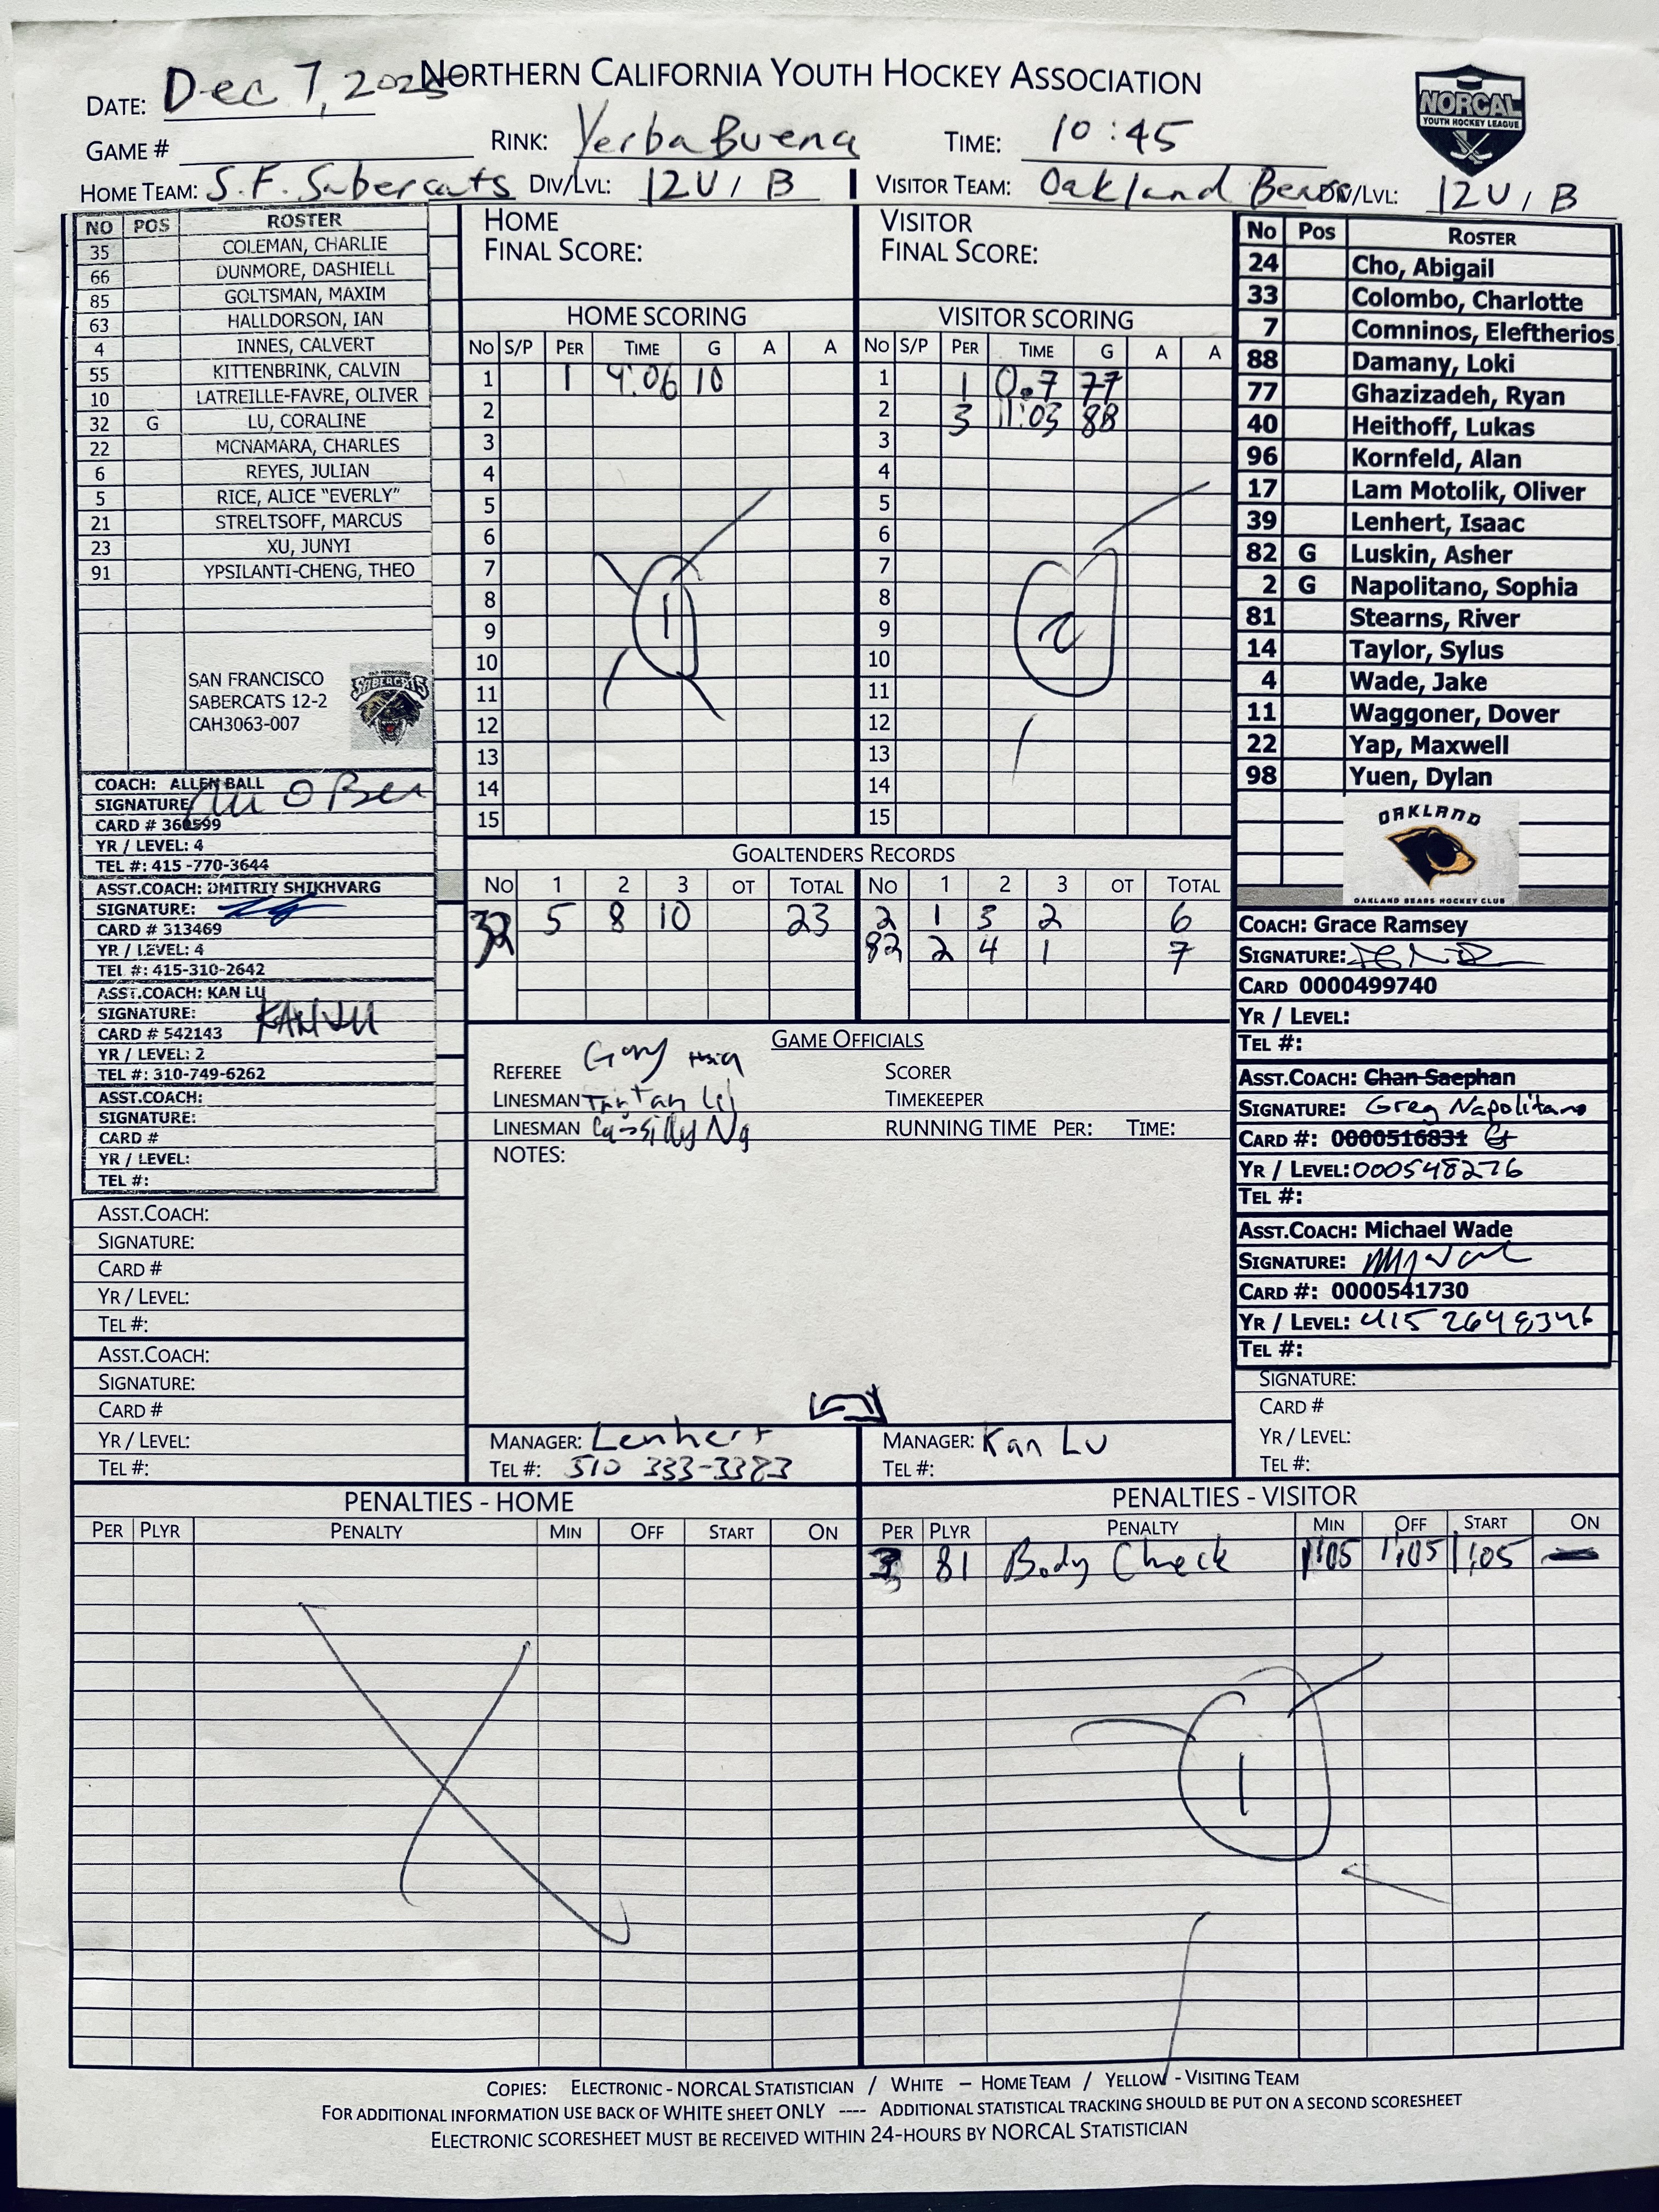 NORTHERN CALIFORNIA YOUTH HOCKEY ASSOCIATION
NORCAL
YOUTH HOCKEY LEAGUE
DATE: Dec 7, 2025
GAME # RINK: Yerba Buena TIME: 10:45
HOME TEAM: S.F. Sabercats DIV/LVL: 12U / B VISITOR TEAM: Oakland Bears DIV/LVL: 12U / B
NO POS ROSTER
35 COLEMAN, CHARLIE
66 DUNMORE, DASHIELL
85 GOLTSMAN, MAXIM
63 HALLDORSON, IAN
4 INNES, CALVERT
55 KITTENBRINK, CALVIN
10 LATREILLE-FAVRE, OLIVER
32 G LU, CORALINE
22 MCNAMARA, CHARLES
6 REYES, JULIAN
5 RICE, ALICE "EVERLY"
21 STRELTSOFF, MARCUS
23 XU, JUNYI
91 YPSILANTI-CHENG, THEO
SAN FRANCISCO
SABERCATS 12-2
CAH3063-007
SABERCATS
COACH: ALLEN BALL
SIGNATURE
CARD # 360599
YR / LEVEL: 4
TEL #: 415 -770-3644
ASST.COACH: DMITRIY SHIKHVARG
SIGNATURE:
CARD # 313469
YR / LEVEL: 4
TEL #: 415-310-2642
ASST.COACH: KAN LU
SIGNATURE: KAN LU
CARD # 542143
YR / LEVEL: 2
TEL #: 310-749-6262
ASST.COACH:
SIGNATURE:
CARD #
YR / LEVEL:
TEL #:
ASST.COACH:
SIGNATURE:
CARD #
YR / LEVEL:
TEL #:
ASST.COACH:
SIGNATURE:
CARD #
YR / LEVEL:
TEL #:
HOME
FINAL SCORE:
HOME SCORING
NO S/P PER TIME G A A
1 1 4:06 10
2
3
4
5
6
7
8
9
10
11
12
13
14
15
1
VISITOR
FINAL SCORE:
VISITOR SCORING
NO S/P PER TIME G A A
1 1 0.7 77
2 3 11:03 88
3
4
5
6
7
8
9
10
11
12
13
14
15
2
GOALTENDERS RECORDS
NO 1 2 3 OT TOTAL NO 1 2 3 OT TOTAL
32 5 8 10 23 2 1 3 2 6
82 2 4 1 7
GAME OFFICIALS
REFEREE Gary Hsia SCORER
LINESMAN TIMEKEEPER
LINESMAN Cassidy Ng RUNNING TIME PER: TIME:
NOTES:
MANAGER: Lenhert MANAGER: Kan Lu
TEL #: 510 333-3383 TEL #:
No Pos ROSTER
24 Cho, Abigail
33 Colombo, Charlotte
7 Comninos, Eleftherios
88 Damany, Loki
77 Ghazizadeh, Ryan
40 Heithoff, Lukas
96 Kornfeld, Alan
17 Lam Motolik, Oliver
39 Lenhert, Isaac
82 G Luskin, Asher
2 G Napolitano, Sophia
81 Stearns, River
14 Taylor, Sylus
4 Wade, Jake
11 Waggoner, Dover
22 Yap, Maxwell
98 Yuen, Dylan
OAKLAND
OAKLAND BEARS HOCKEY CLUB
COACH: Grace Ramsey
SIGNATURE:
CARD 0000499740
YR / LEVEL:
TEL #:
ASST.COACH: Chan Saephan
SIGNATURE: Greg Napolitano
CARD #: 0000516831
YR / LEVEL: 000548276
TEL #:
ASST.COACH: Michael Wade
SIGNATURE:
CARD #: 0000541730
YR / LEVEL: 415 2648346
TEL #:
SIGNATURE:
CARD #
YR / LEVEL:
TEL #:
PENALTIES - HOME
PER PLYR PENALTY MIN OFF START ON
PENALTIES - VISITOR
PER PLYR PENALTY MIN OFF START ON
3 81 Body Check 1:05 1:05 1:05
1
COPIES: ELECTRONIC - NORCAL STATISTICIAN / WHITE – HOME TEAM / YELLOW - VISITING TEAM
FOR ADDITIONAL INFORMATION USE BACK OF WHITE SHEET ONLY ---- ADDITIONAL STATISTICAL TRACKING SHOULD BE PUT ON A SECOND SCORESHEET
ELECTRONIC SCORESHEET MUST BE RECEIVED WITHIN 24-HOURS BY NORCAL STATISTICIAN